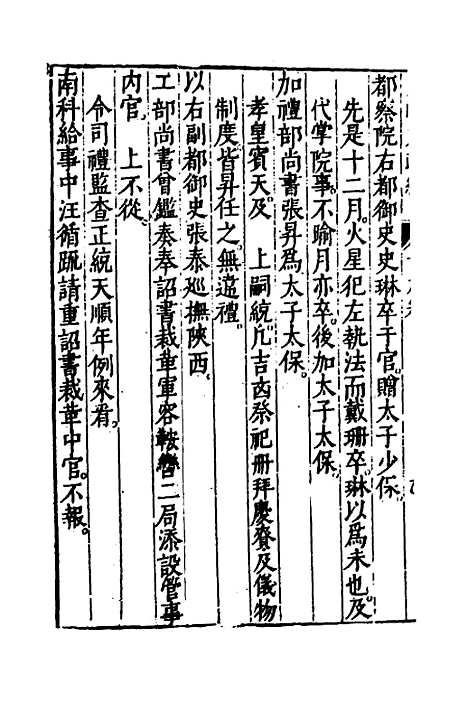 都察院右都御史史琳卒于官。贈太子少保。
先是十二月。火星犯左執法而戴珊卒。琳以爲未也。及
代掌院事。不踰月亦卒。後加太子太保。
加禮部尚書張昇爲太子太保。
孝皇賓天。及　上嗣統。凡吉凶祭祀册拜慶賚及儀物
制度。皆昇任之。無違禮。
以右副都御史張泰巡撫陝西。
工部尚書曾鑑奏奉詔書裁革軍容鞍轡二局添設管事
內官。　上不從。
令司禮監查正統天順年例來看。
南科給事中汪循疏請重詔書裁革中官。不報。